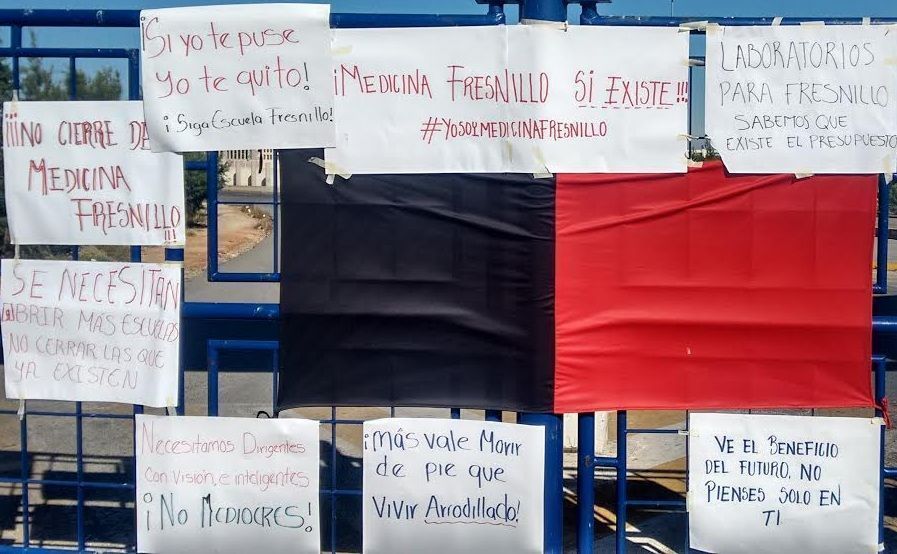 ¡Si yo te puse
Yo te quito!
¡Siga Escuela Fresnillo!
¡Medicina Fresnillo Si Existe!!!
#YosoyMedicinaFresnillo
LABORATORIOS
PARA FRESNILLO
SABEMOS QUE
EXISTE EL PRESUPUESTO
¡¡¡No CIERRE DE
MEDICINA
FRESNILLO!!!
SE NECESITAN
ABRIR MÁS ESCUELAS
NO CERRAR LAS QUE
YA EXISTEN
Necesitamos Dirigentes
con Visión, e inteligentes
¡No MEDIOCRES!
¡Más vale Morir
de pie que
vivir Arrodillado!
VE EL BENEFICIO
DEL FUTURO, NO
PIENSES SOLO EN
TI